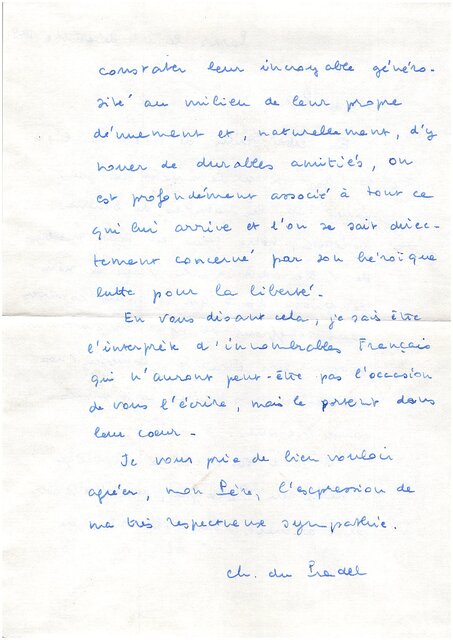 constater leur incroyable généro-
sité au milieu de leur propre
dénuement et, naturellement, d'y
nouer de durables amitiés, on
est profondément associé à tout ce
qui lui arrive et l'on se sait direc-
tement concerné par son héroïque
lutte pour la liberté.
En vous disant cela, je sais être
l'interprète d'innombrables Français
qui n'auront peut-être pas l'occasion
de vous l'écrire, mais le portent dans
leur coeur.
Je vous prie de bien vouloir
agréer, mon Père, l'expression de
ma très respectueuse sympathie.
Ch. du Pradel